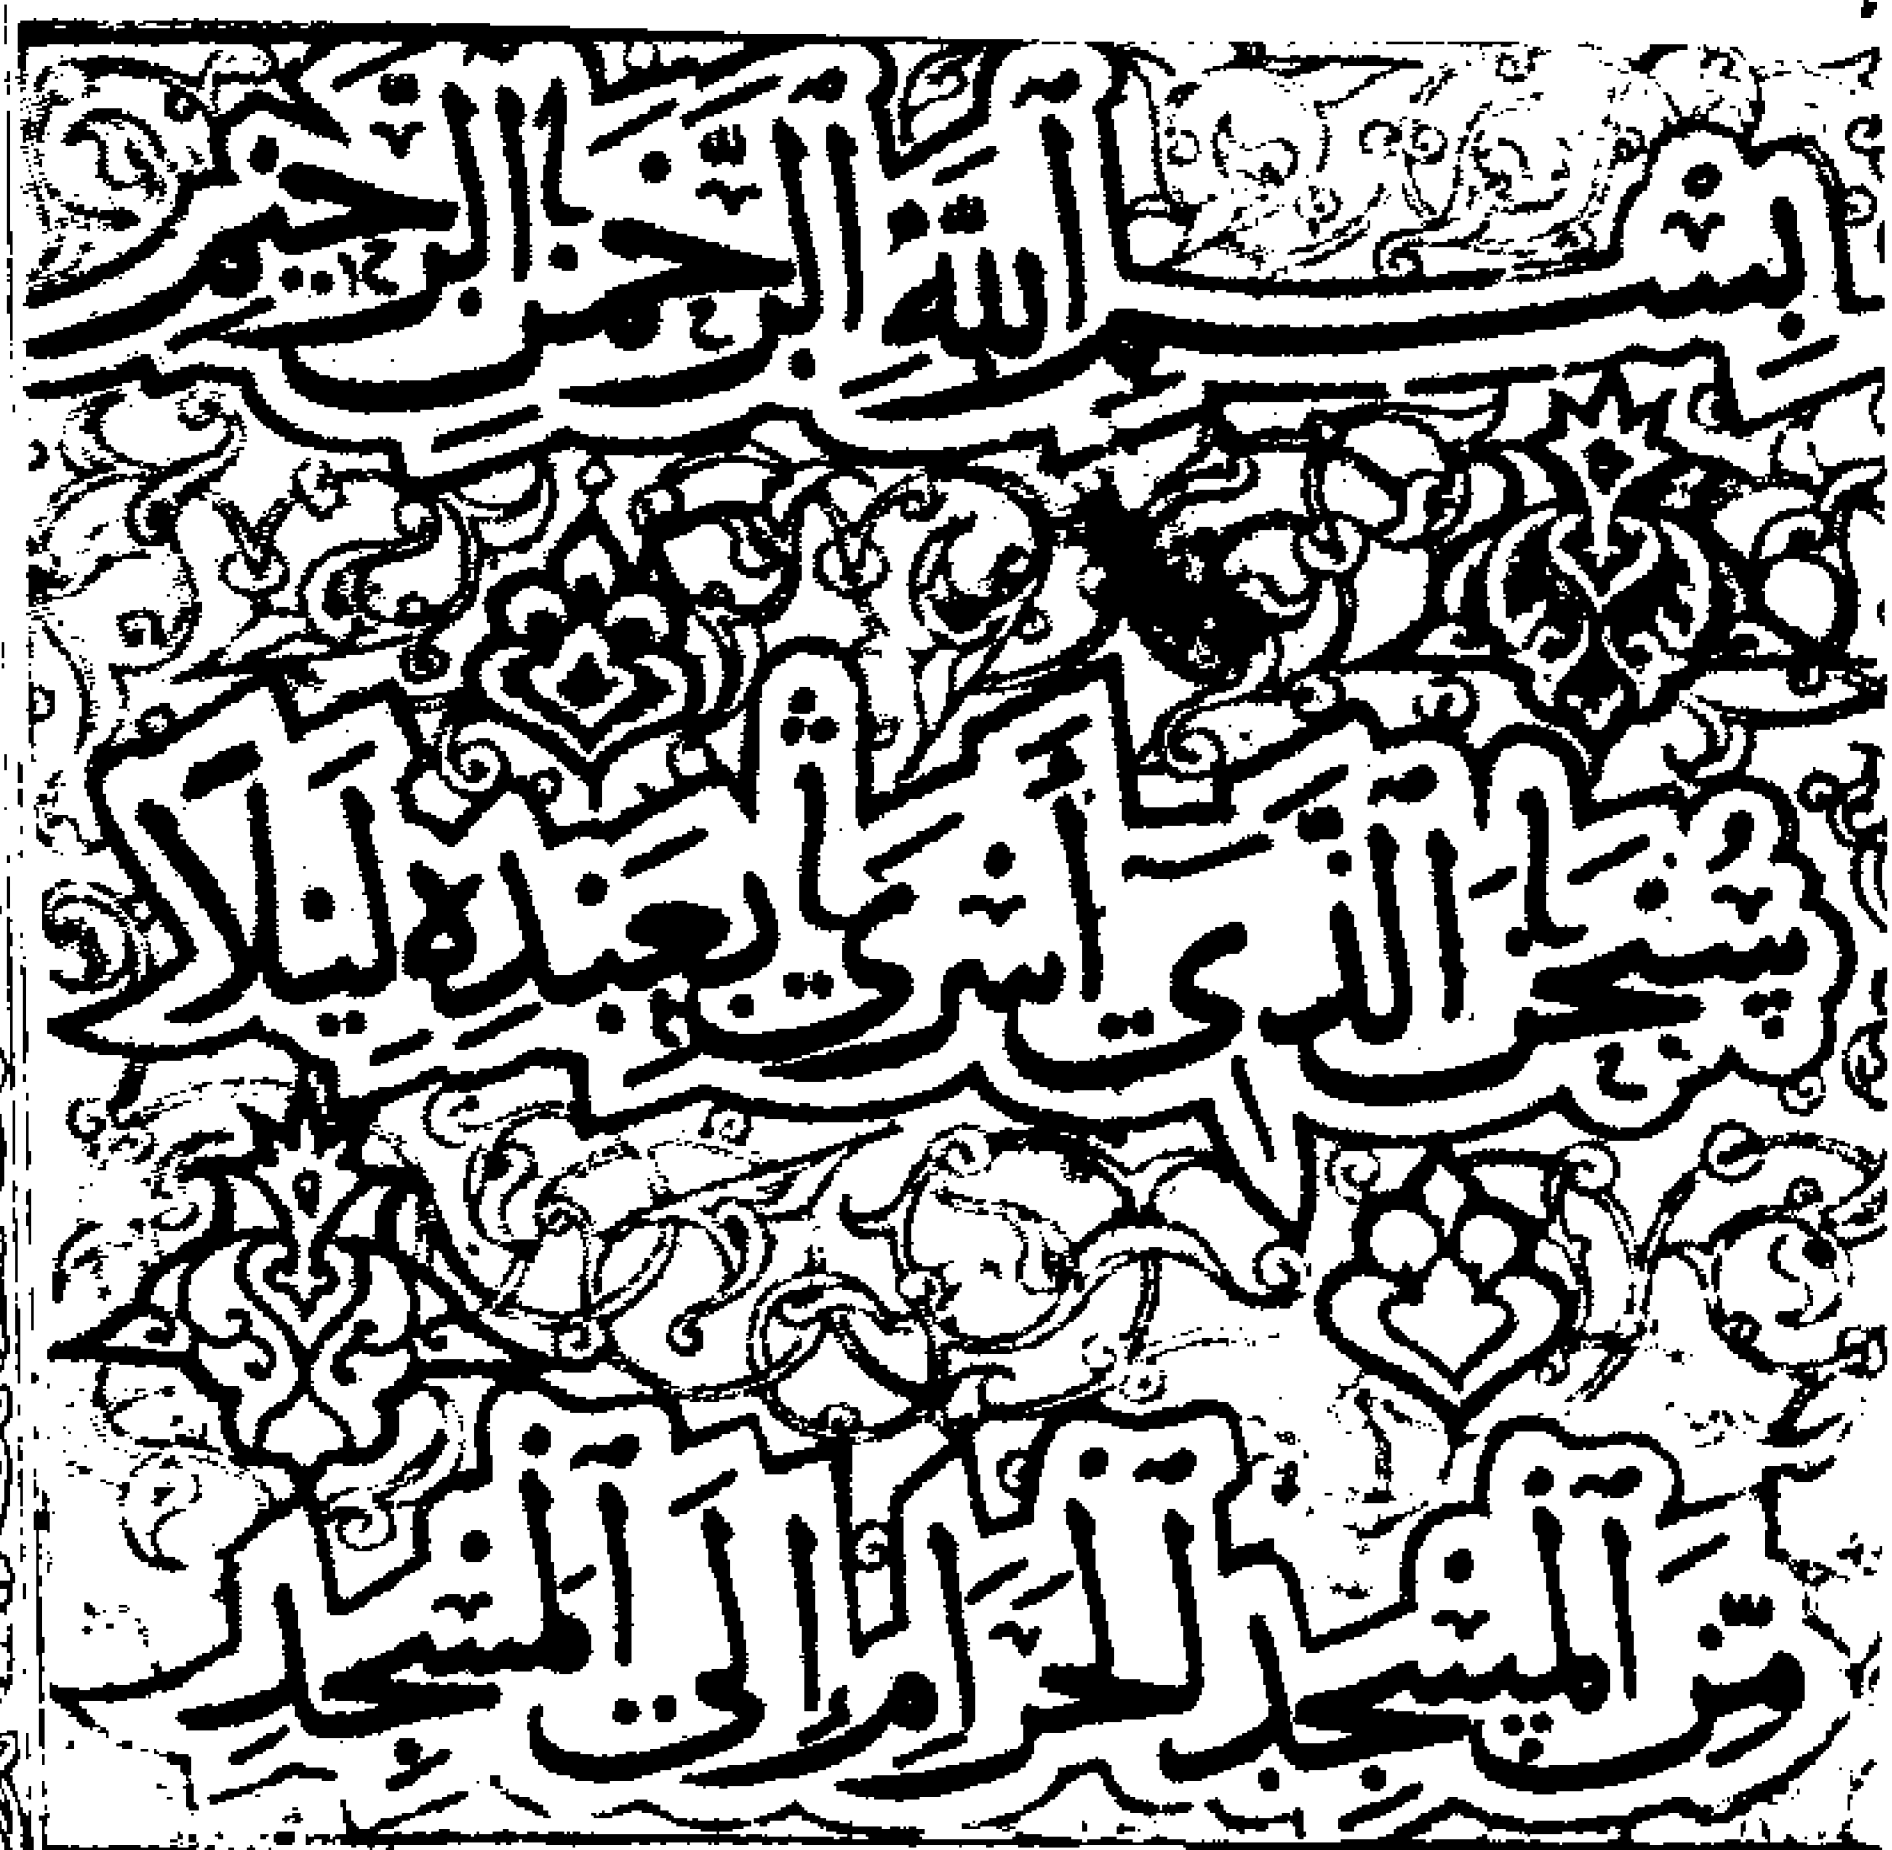 بِسْمِ اللَّهِ الرَّحْمَٰنِ الرَّحِيمِ
سُبْحَٰنَ الَّذِي أَسْرَىٰ بِعَبْدِهِ لَيْلًا
مِنَ الْمَسْجِدِ الْحَرَامِ إِلَى الْمَسْجِدِ